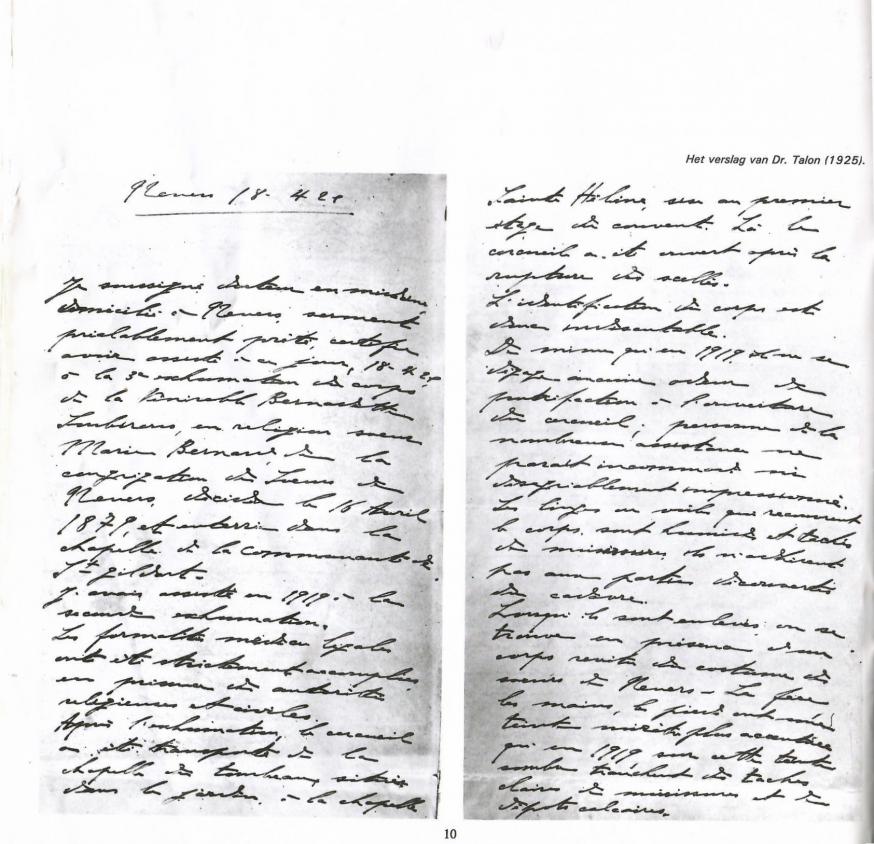 Het verslag van Dr. Talon (1925).
Nevers 18. 4 25
Je soussigné docteur en médecine
domicilié à Nevers, serment
préalablement prêté, certifie
avoir assisté à ce jour, 18.4.25
à la 3e exhumation du corps
de la Vénérable Bernadette
Soubirous, en religion sœur
Marie Bernard, de la
congrégation des Sœurs de
Nevers, décédée le 16 Avril
1879, et enterrée dans la
chapelle de la communauté de
St Gildard.
J'avais assisté en 1919 à la
seconde exhumation.
Les formalités médico légales
ont été strictement accomplies
en présence des autorités
religieuses et civiles.
Après l'exhumation, le cercueil
a été transporté de la
chapelle du tombeau, située
dans le jardin, à la chapelle
Sainte Hélène, sise au premier
étage du couvent. Là le
cercueil a été ouvert après la
rupture des scellés.
L'identification du corps est
donc indiscutable.
De même qu'en 1919 il ne se
dégage aucune odeur de
putréfaction à l'ouverture
du cercueil; personne de la
nombreuse assistance ne
parait incommodé ni
désagréablement impressionné.
Les linges ou voile qui recouvrent
le corps sont humides et tachés
de moisissures, ils n'adhèrent
pas aux parties découvertes
du cadavre.
Lorsqu'ils sont enlevés on se
trouve en présence d'un
corps revêtu du costume des
sœurs de Nevers - La face
les mains, le pied ont une
teinte noirâtre plus accentuée
qu'en 1919 sur cette teinte
sombre tranchent des taches
claires de moisissures et de
dépôts calcaires.
10